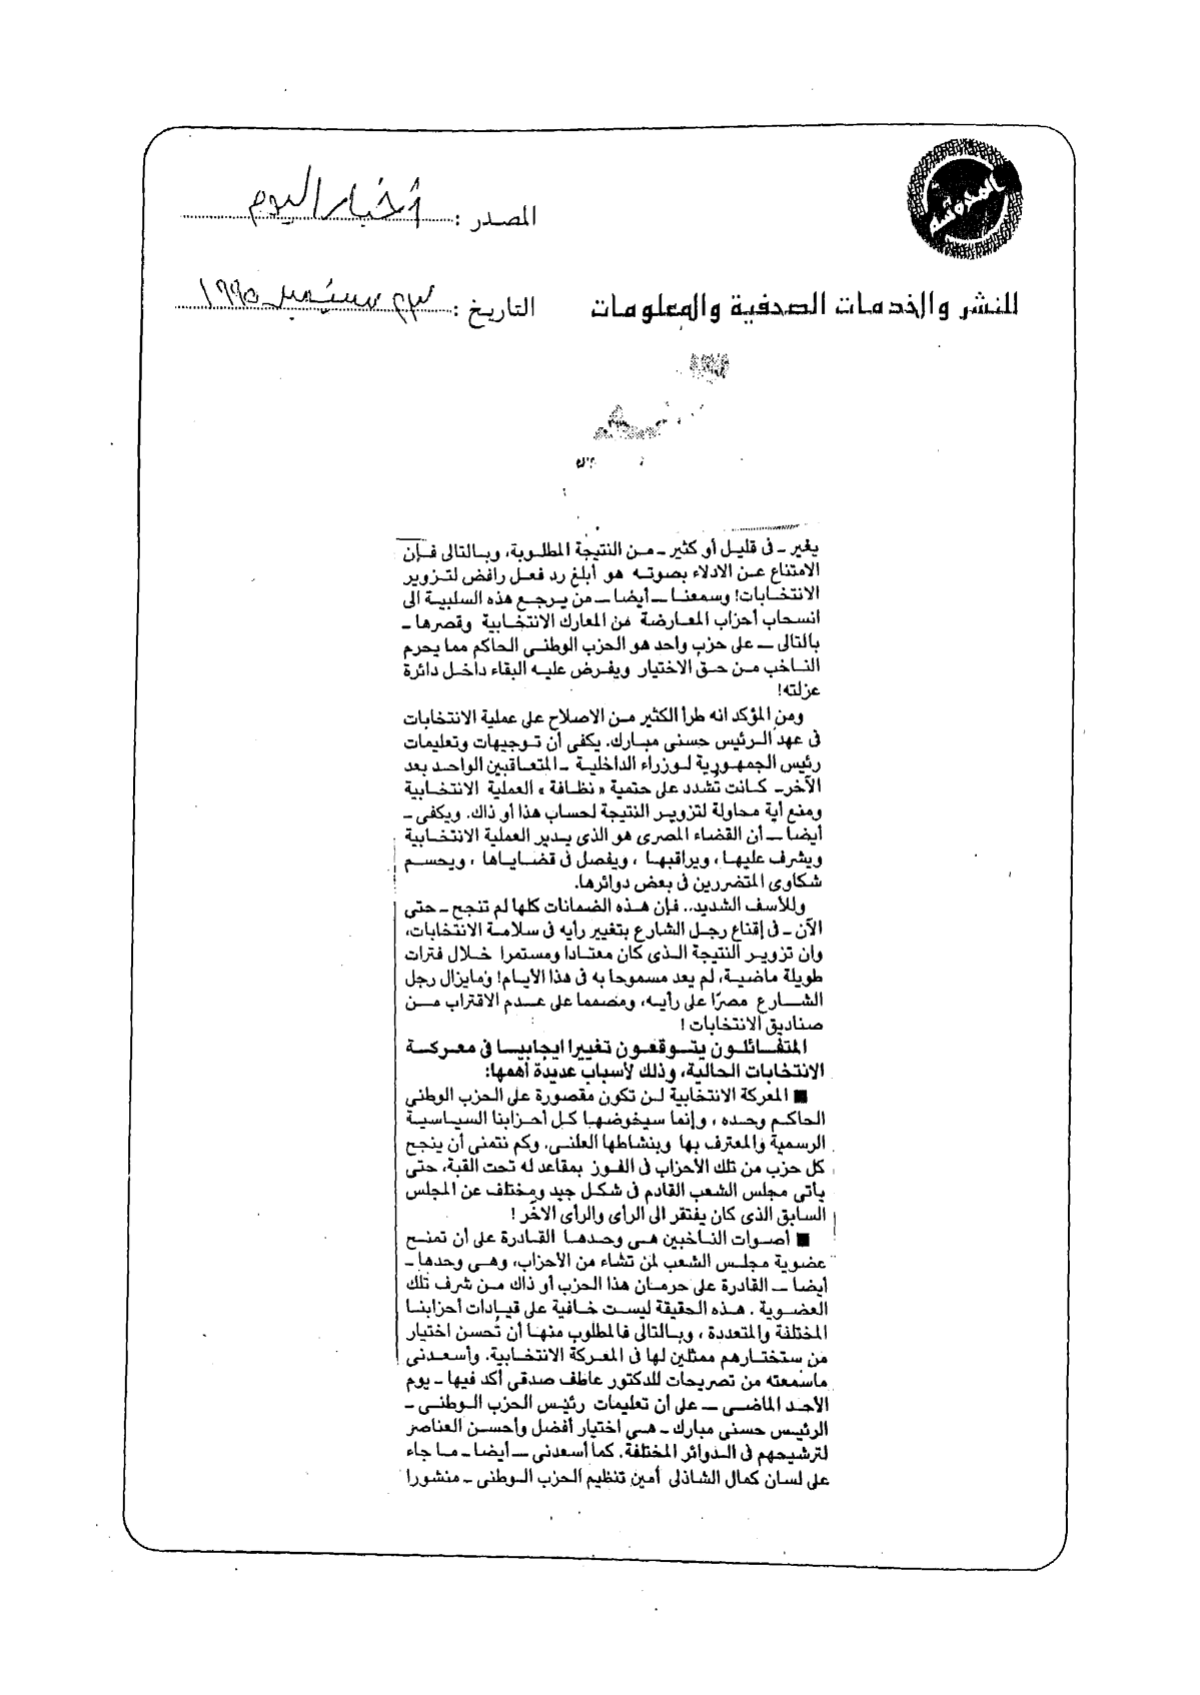 المصدر : أخبار اليوم
للنشر والخدمات الصحفية والمعلومات
التاريخ : ٢٣ سبتمبر ١٩٩٥
يغير ـ فى قليل أو كثير ـ من النتيجة المطلوبة، وبالتالى فإن
الامتناع عن الادلاء بصوته هو أبلغ رد فعل رافض لتزوير
الانتخابات! وسمعنا ـ أيضا ـ من يرجع هذه السلبية الى
انسحاب أحزاب المعارضة من المعارك الانتخابية وقصرها ـ
بالتالى ـ على حزب واحد هو الحزب الوطنى الحاكم مما يحرم
الناخب من حق الاختيار ويفرض عليه البقاء داخل دائرة
عزلته!
ومن المؤكد انه طرأ الكثير من الاصلاح على عملية الانتخابات
فى عهد الرئيس حسنى مبارك. يكفى أن توجيهات وتعليمات
رئيس الجمهورية لوزراء الداخلية ـ المتعاقبين الواحد بعد
الآخر ـ كانت تشدد على حتمية « نظافة » العملية الانتخابية
ومنع أية محاولة لتزوير النتيجة لحساب هذا أو ذاك. ويكفى ـ
أيضا ـ أن القضاء المصرى هو الذى يدير العملية الانتخابية
ويشرف عليها ، ويراقبها ، ويفصل فى قضاياها ، ويحسم
شكاوى المتضررين فى بعض دوائرها.
وللأسف الشديد.. فإن هذه الضمانات كلها لم تنجح ـ حتى
الآن ـ فى إقناع رجل الشارع بتغيير رأيه فى سلامة الانتخابات،
وان تزوير النتيجة الذى كان معتادا ومستمرا خلال فترات
طويلة ماضية، لم يعد مسموحا به فى هذا الأيام! ومايزال رجل
الشارع مصرّا على رأيه، ومصمما على عدم الاقتراب من
صناديق الانتخابات !
المتفائلون يتوقعون تغييرا ايجابيا فى معركة
الانتخابات الحالية، وذلك لأسباب عديدة أهمها:
■ المعركة الانتخابية لن تكون مقصورة على الحزب الوطنى
الحاكم وحده ، وإنما سيخوضها كل أحزابنا السياسية
الرسمية والمعترف بها وبنشاطها العلنى. وكم نتمنى أن ينجح
كل حزب من تلك الأحزاب فى الفوز بمقاعد له تحت القبة، حتى
يأتى مجلس الشعب القادم فى شكل جيد ومختلف عن المجلس
السابق الذى كان يفتقر الى الرأى والرأى الاخر !
■ أصوات الناخبين هى وحدها القادرة على أن تمنح
عضوية مجلس الشعب لمن تشاء من الأحزاب، وهى وحدها ـ
أيضا ـ القادرة على حرمان هذا الحزب أو ذاك من شرف تلك
العضوية . هذه الحقيقة ليست خافية على قيادات أحزابنا
المختلفة والمتعددة ، وبالتالى فالمطلوب منها أن تُحسن اختيار
من ستختارهم ممثلين لها فى المعركة الانتخابية. وأسعدنى
ماسمعته من تصريحات للدكتور عاطف صدقى أكد فيها ـ يوم
الأحد الماضى ـ على أن تعليمات رئيس الحزب الوطنى ـ
الرئيس حسنى مبارك ـ هى اختيار أفضل وأحسن العناصر
لترشيحهم فى الدوائر المختلفة. كما أسعدنى ـ أيضا ـ ما جاء
على لسان كمال الشاذلى أمين تنظيم الحزب الوطنى ـ منشورا